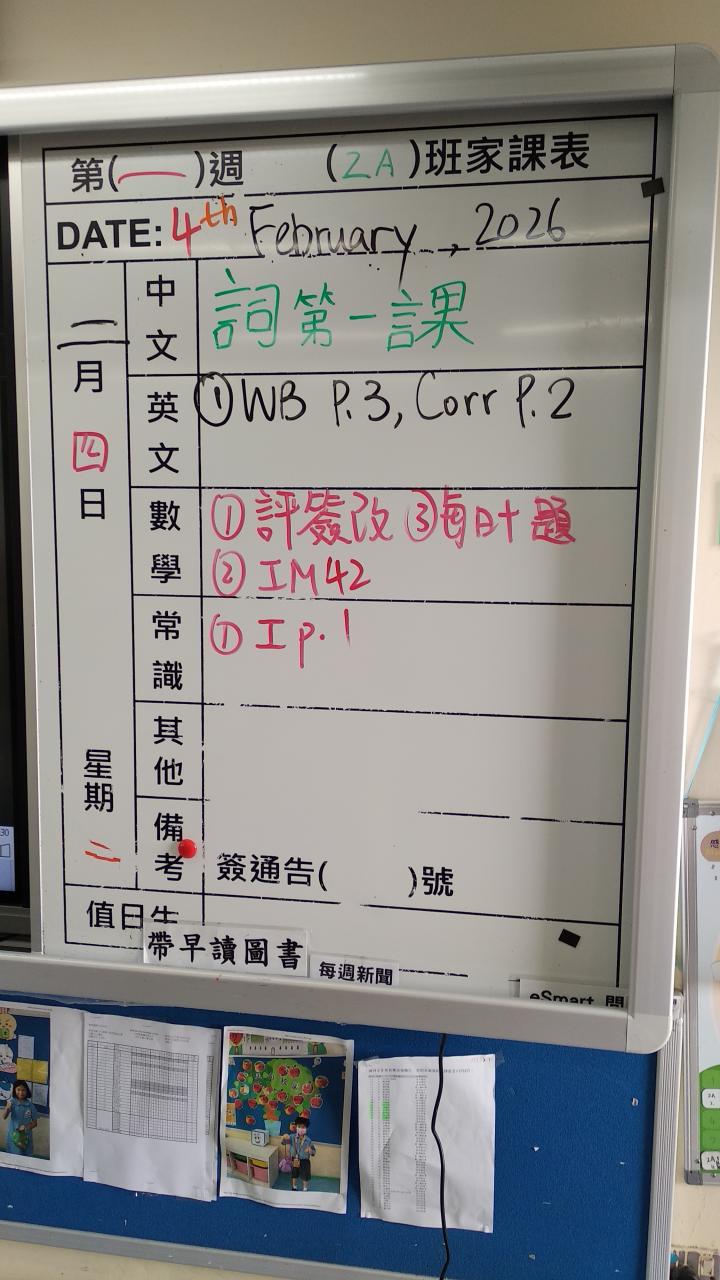 第( )週 (2A)班家課表
DATE: 4th February, 2026
二月四日
星期二
中文
詞第一課
英文
①WB P.3, Corr P.2
數學
①評簽改 ③每日十題
②IM42
常識
①I p.1
其他
備考
簽通告( )號
值日生
帶早讀圖書
每週新聞
eSmart